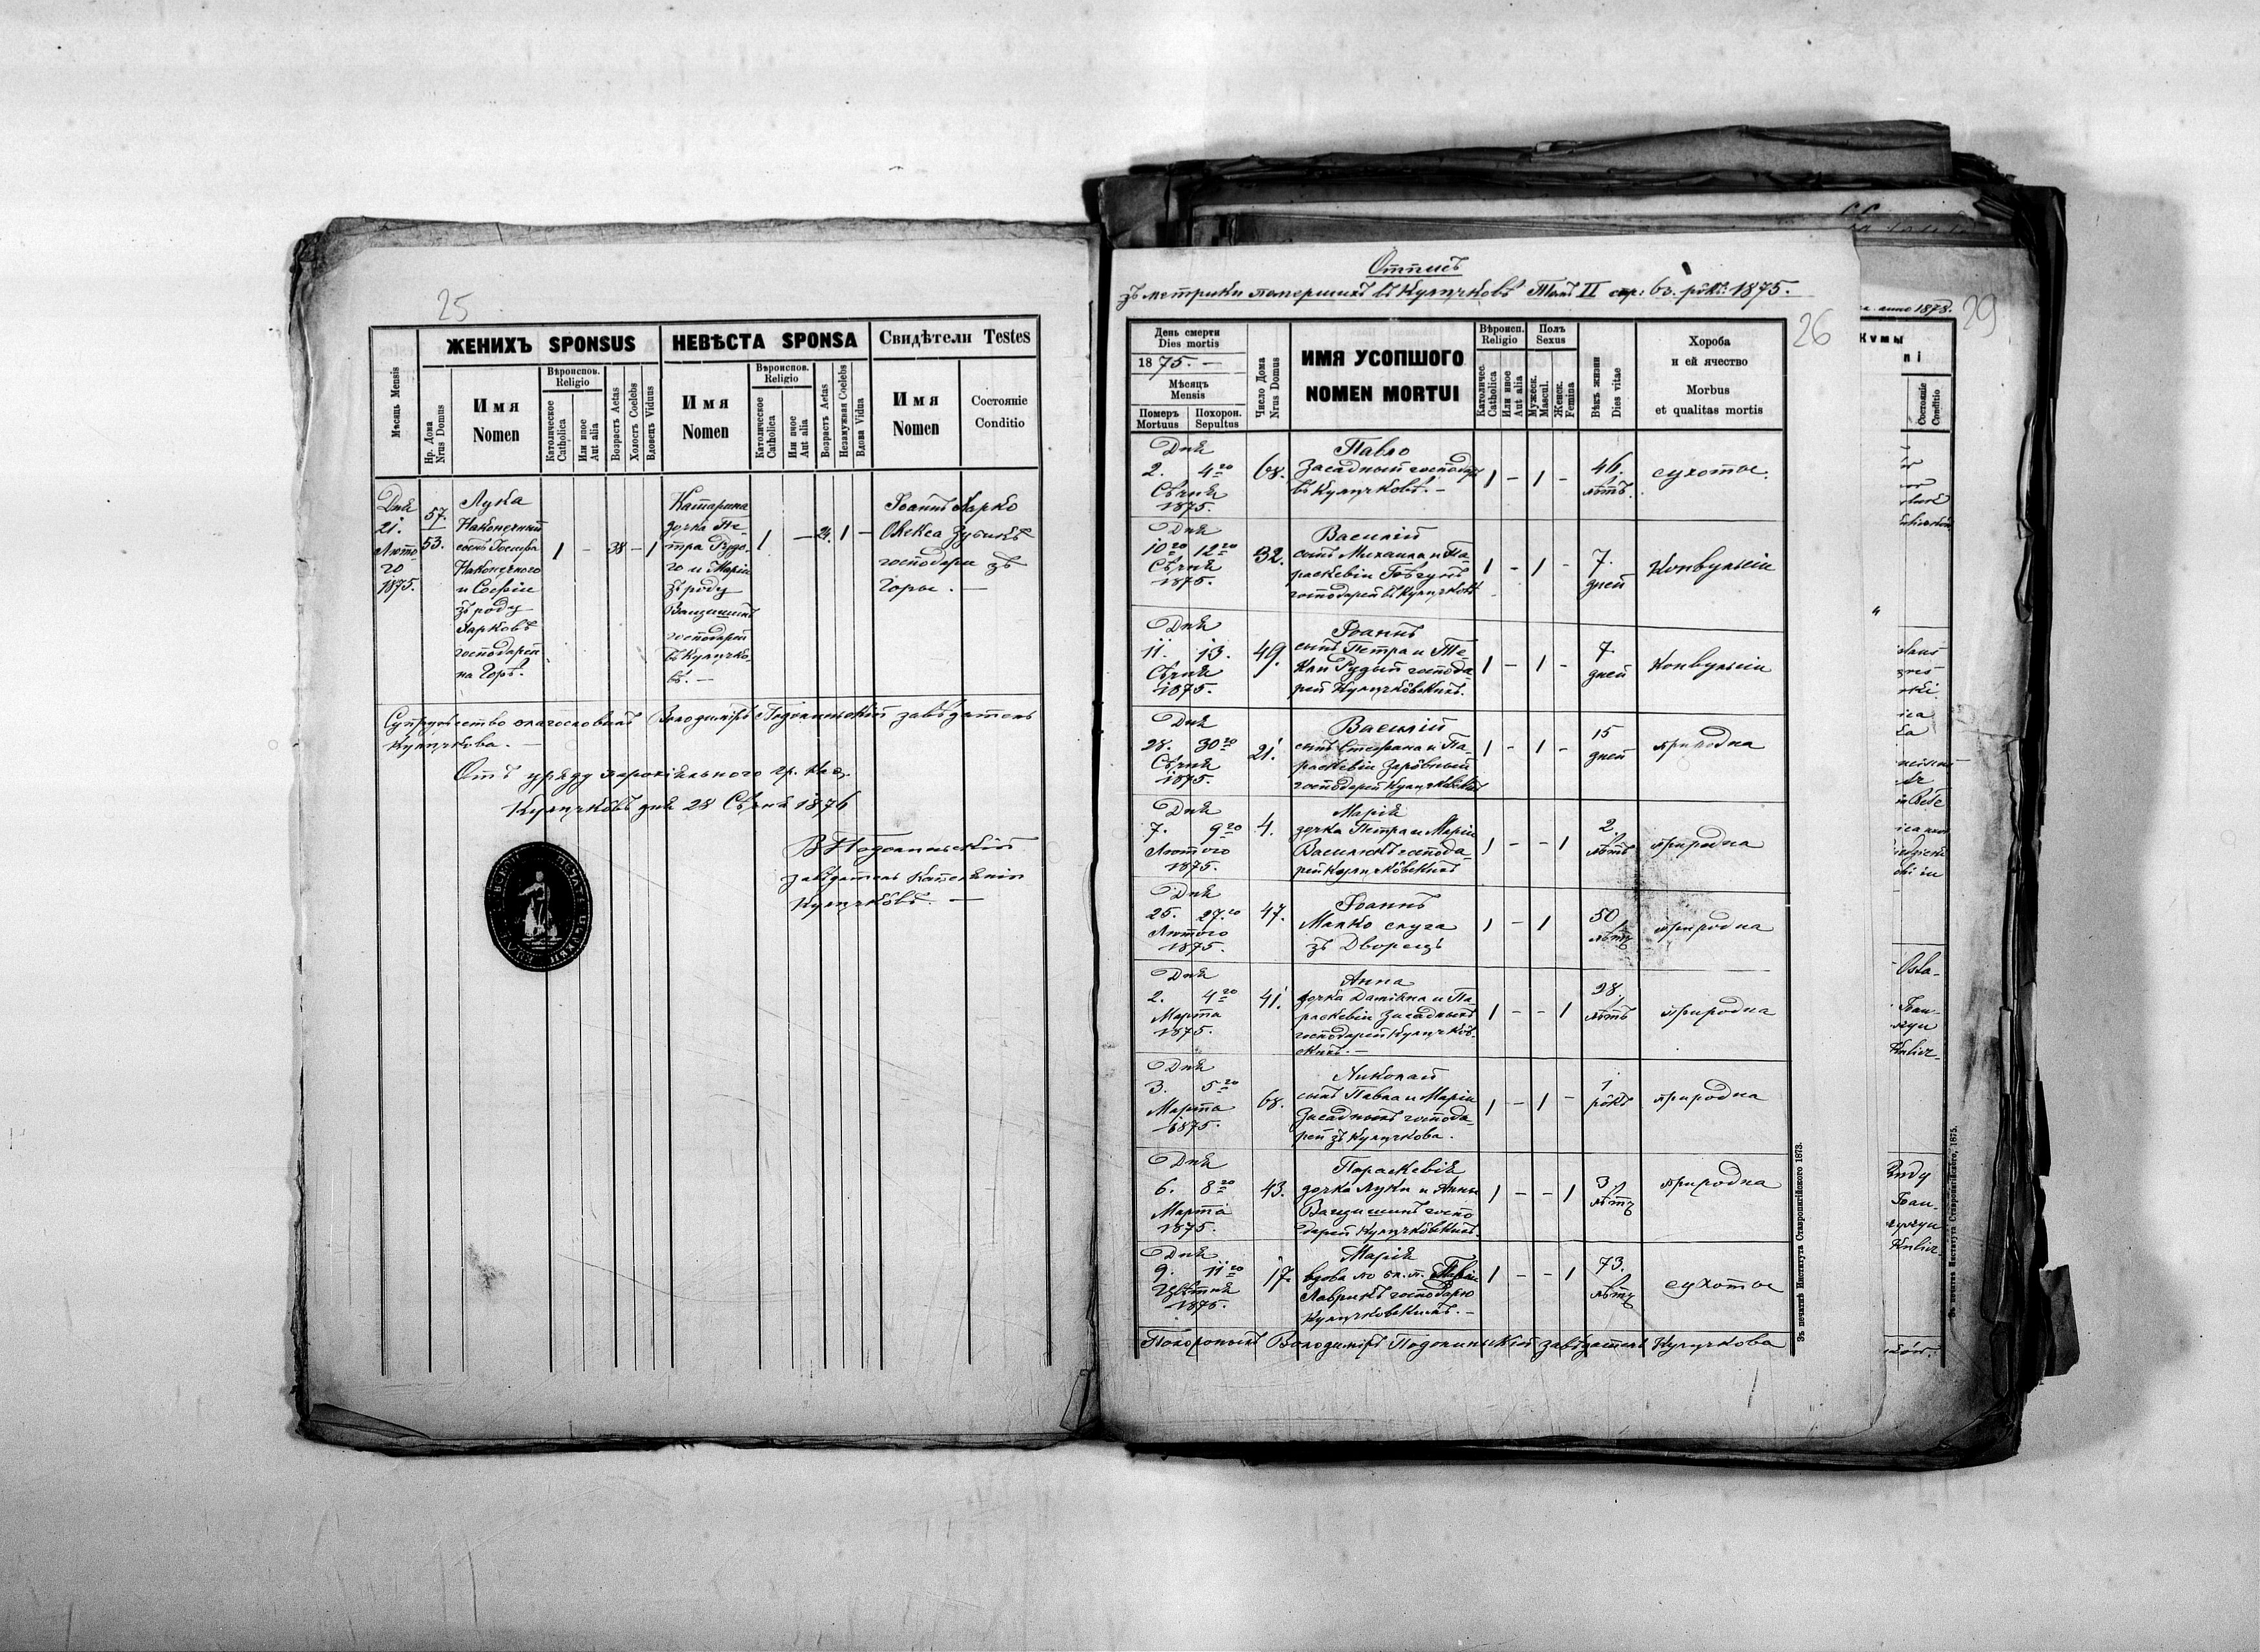 25
ЖЕНИХЪ SPONSUS
НЕВѢСТА SPONSA
Свидѣтели Testes
Мѣсяць Mensis
Нр. Дома Nrus Domus
Имя Nomen
Вѣроиспов. Religio
Католическое Catholica
Или иное Aut alia
Возрастъ Aetas
Холостъ Coelebs
Вдовецъ Viduus
Имя Nomen
Вѣроиспов. Religio
Католическое Catholica
Или иное Aut alia
Возрастъ Aetas
Незамужная Coelebs
Вдова Vidua
Имя Nomen
Состояніе Conditio
Дня
21.
Люто
го
1875.
57.
53.
Лука
Наконечный
сынъ Іосифа
Наконечного
и Софіи
зъ роду
Харковъ
господарей
на Горѣ.
1 - 38 - 1
Катарина
дочка Пе-
тра Рудо-
го и Маріи
зъ роду
господарей
въ Куличко-
вѣ. —
1 - 24. 1 -
Іоаннъ Харко
Олекса
господари зъ
Горы. —
Супружество благословилъ Володимиръ Подолиньскій завѣдатель
Куличкова. —
Отъ уряду парохіяльного гр. кат.
Куличковъ дня 28 Сѣчня 1876
В Подолиньскій
завѣдатель капеляніи
Куличковъ. —
Отписъ
зъ метрики помершихъ въ Куличковѣ Томъ II стр: 63. рôкъ: 1875.
26
День смерти Dies mortis
1875. —
Мѣсяцъ Mensis
Померъ Mortuus
Похорон. Sepultus
Число Дома Nrus Domus
ИМЯ УСОПШОГО
NOMEN MORTUI
Вѣроисп. Religio
Католичес. Catholica
Или иное Aut alia
Полъ Sexus
Мужеск. Mascul.
Женск. Femina
Вѣкъ жизни Dies vitae
Хороба
и ей ячество
Morbus
et qualitas mortis
Дня
2. 4го
Сѣчня
1875.
68.
Павло
Засадный господарь
въ Куличковѣ. —
1 - 1 -
46.
лѣтъ.
сухоты.
Дня
10го 12го
Сѣчня
1875.
32.
Василій
сынъ Михаила и Па-
раскевіи
господарей въ Куличковѣ
1 - 1 -
7.
дней
Конвульсіи
Дня
11. 13.
Сѣчня
1875.
49.
Іоаннъ
сынъ Петра и Те-
клі Рудый господа-
рей Куличкôвскихъ.
1 - 1 -
7.
дней
Конвульсіи
Дня
28. 30го
Сѣчня
1875.
21.
Василій
сынъ Стефана и Па-
раскевіи
господарей Куличкôвскихъ
1 - 1 -
15
дней
природна
Дня
7. 9го
Лютого
1875.
4.
Марія
дочка Петра и Маріи
Василюкъ господа-
рей Куличкôвскихъ
1 - - 1
2.
лѣтъ
природна
Дня
25. 27.го
Лютого
1875.
47.
Іоаннъ
Малко слуга
зъ Дворець
1 - 1
50
лѣтъ
природна
Дня
2. 4го
Марта
1875.
41.
Анна
дочка Даміяна и Па-
раскевіи Засадныхъ
господарей Куличкôв-
скихъ. —
1 - - 1
28.
лѣтъ
природна
Дня
3. 5го
Марта
1875.
68.
Николай
сынъ Павла и Маріи
Засадныхъ господа-
рей зъ Куличкова.
1 - 1 -
1.
рôкъ
природна
Дня
6. 8го
Марта
1875.
43.
Параскевія
дочка Луки и Анны
госпо
дарей Куличкôвскихъ.
1 - - 1
3.
лѣтъ
природна
Дня
9. 11го
Цвѣтня
1875.
17.
Марія
вдова по бл. п.
Лаврикъ господарю
Куличковскимъ. —
1 - - 1
73.
лѣтъ
сухоты
Похоронилъ Володимиръ Подолиньскій завѣдатель Куличкова
Зъ печатнѣ Института Ставропигійского 1873.
anno 1878.
29
Кумы
Состояніе
Conditio
Зъ печатнѣ Института Ставропигійского, 1875.